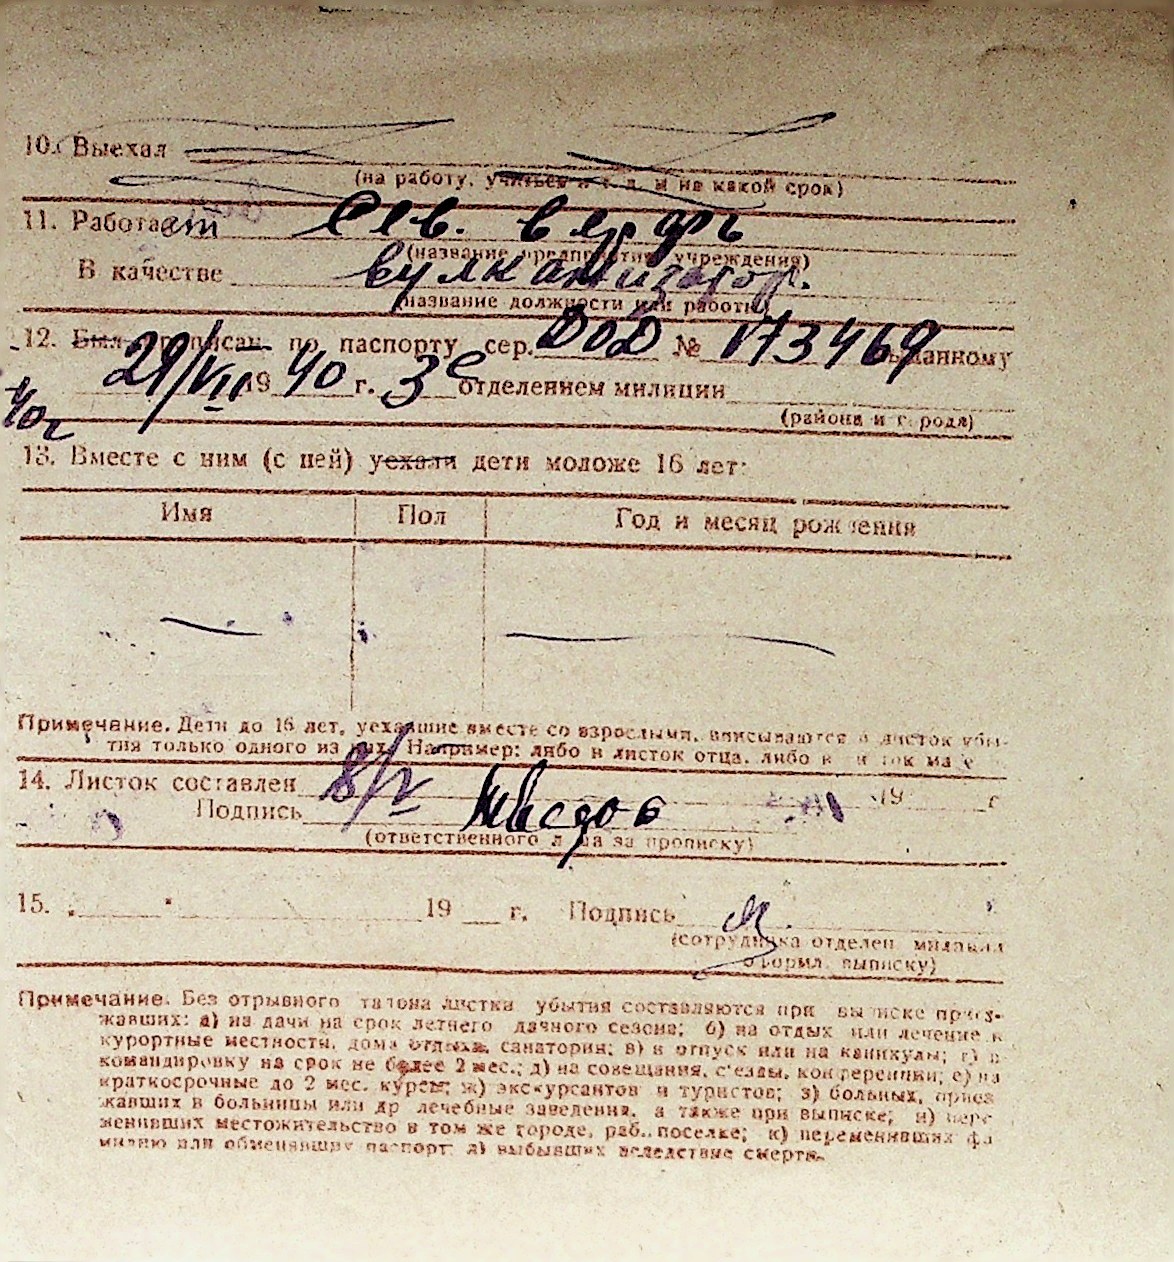 10. Выехал
(на работу, учиться и т. д. и на какой срок)
11. Работает Сев. верфь
(название предприятия, учреждения)
В качестве вулканизатор.
(название должности или работы)
12. Был прописан по паспорту сер. ДОД № 173469 выданному
29/VII 1940 г. 3е отделением милиции
40г
(района и города)
13. Вместе с ним (с ней) уехали дети моложе 16 лет:
Имя Пол Год и месяц рождения
Примечание. Дети до 16 лет, уехавшие вместе со взрослыми, вписываются в листок убы-
тия только одного из них. Например: либо в листок отца, либо в листок ма
14. Листок составлен 8/V 19 г
Подпись
(ответственного лица за прописку)
15. 19 г. Подпись
(сотрудника отделен. милиции
оформл. выписку)
Примечание. Без отрывного талона листка убытия составляются при выписке приез-
жавших: а) на дачи на срок летнего дачного сезона; б) на отдых или лечение в
курортные местности, дома отдыха, санатории; в) в отпуск или на каникулы; г) в
командировку на срок не более 2 мес.; д) на совещания, с'езды, конференции; е) на
краткосрочные до 2 мес. курсы; ж) экскурсантов и туристов; з) больных, приез
жавших в больницы или др лечебные заведения, а также при выписке; и) пере-
менивших местожительство в том же городе, раб. поселке; к) переменивших фа
милию или обменявших паспорт; л) выбывших вследствие смерти.